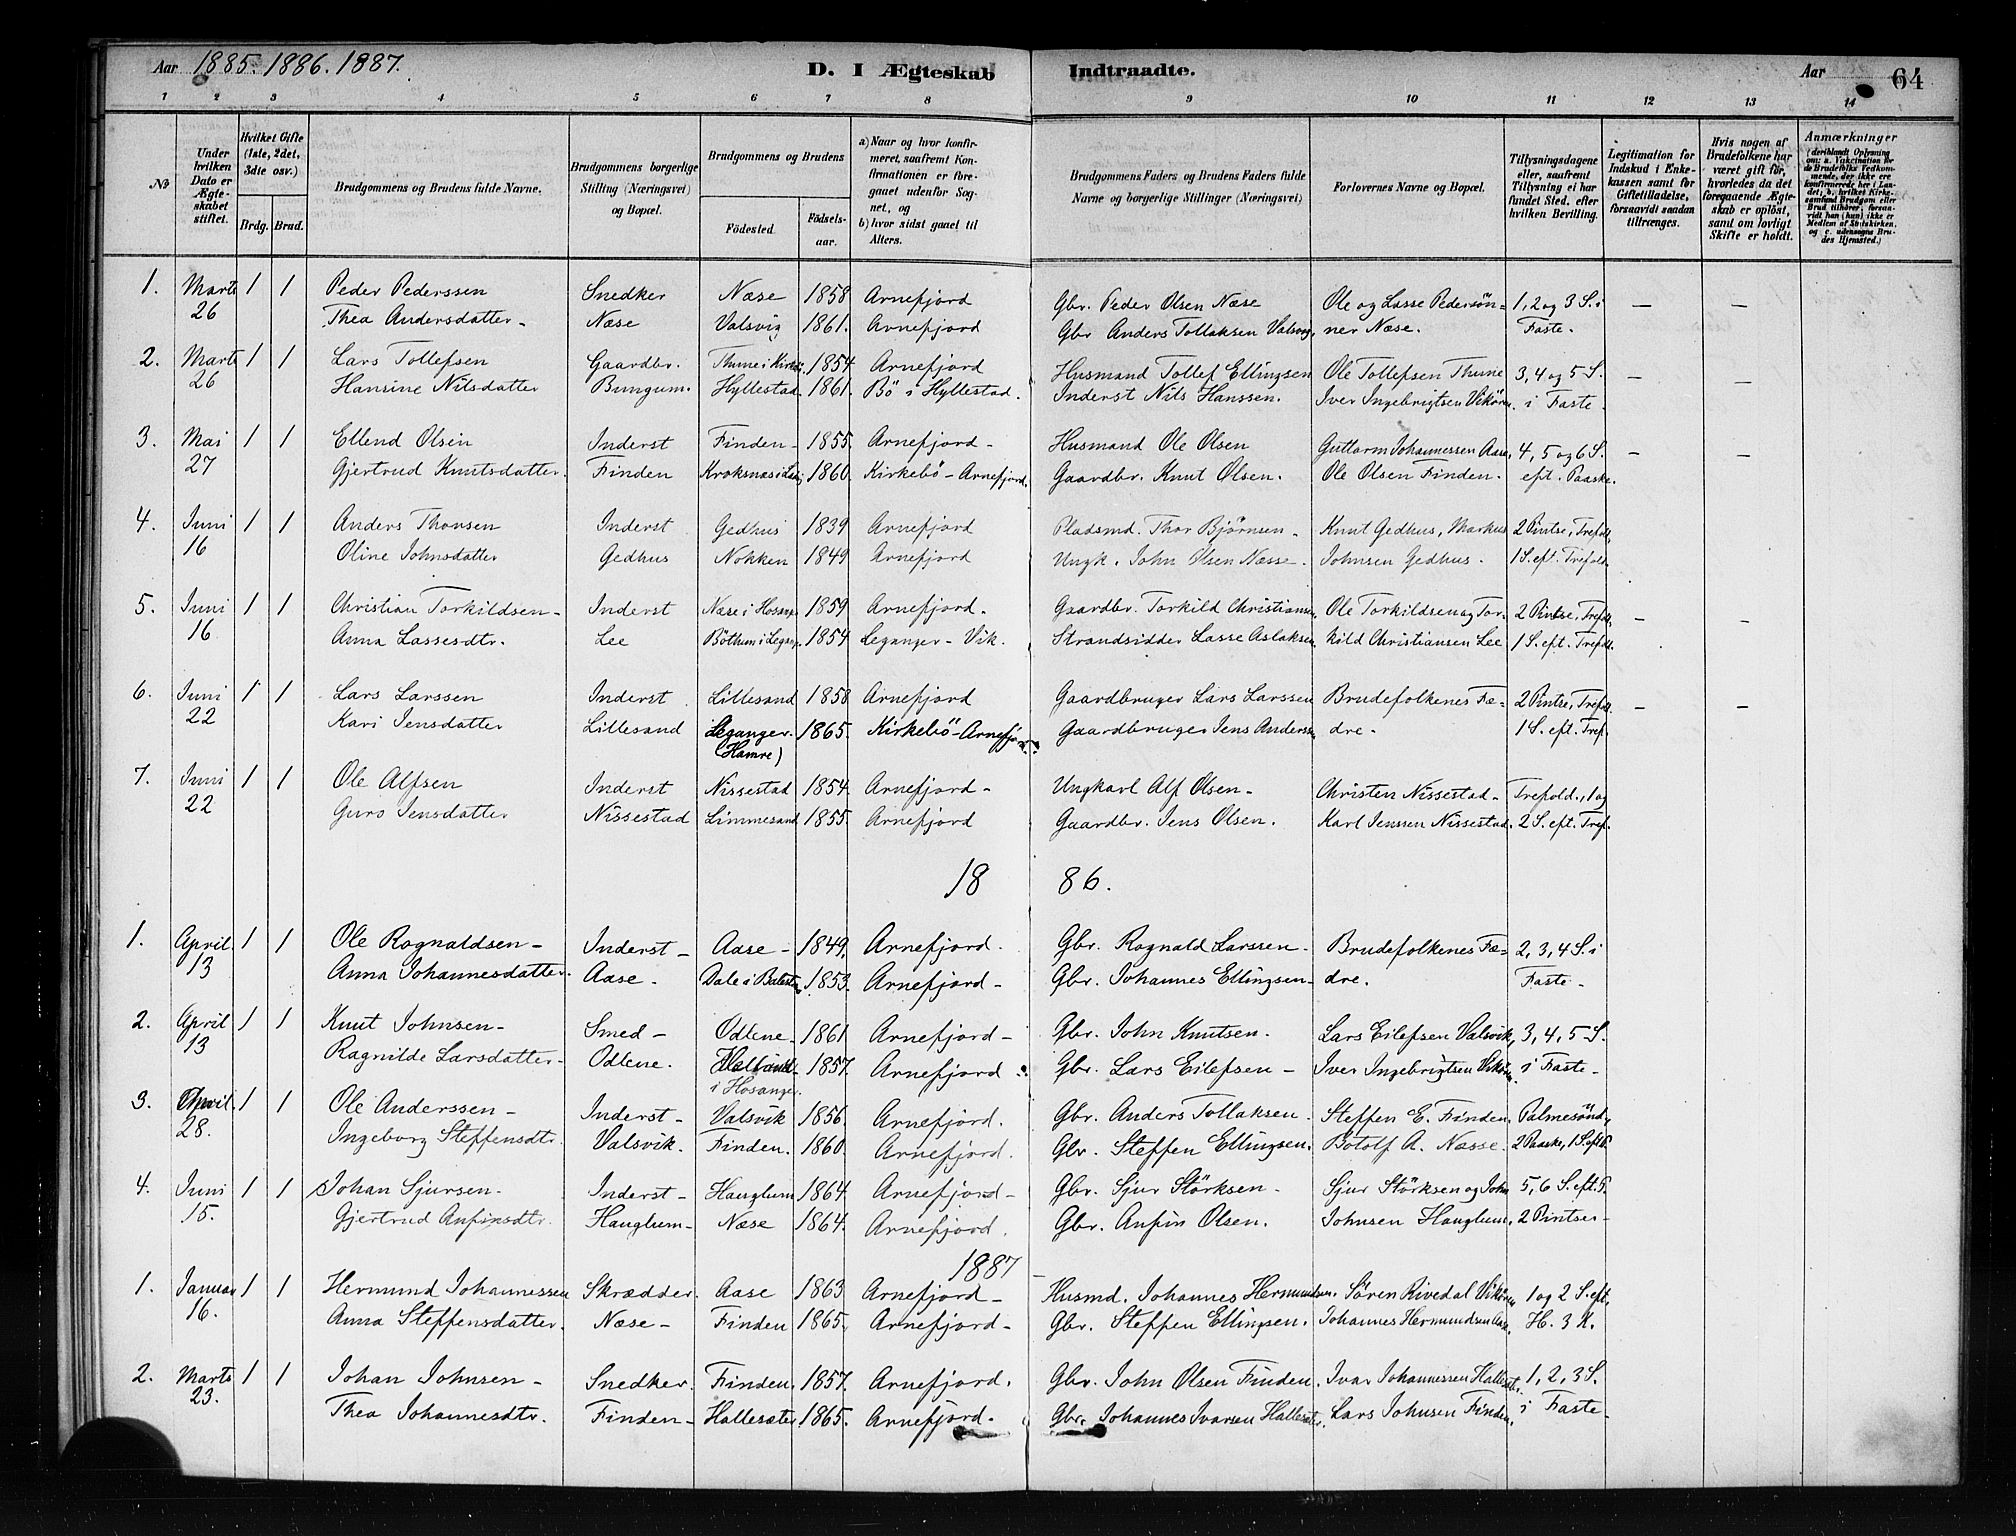 Aar 1885. 1886. 1887. D. I Ægteskab Indtraadte. Aar 64
1 2 3 4 5 6 7 8 9 10 11 12 13 14
No
Under hvilken Dato er Ægteskabet stiftet.
Hvilket Gifte (1ste, 2det, 3die osv.)
Brdg. Brud.
Brudgommens og Brudens fulde Navne.
Brudgommens borgerlige Stilling (Næringsvei) og Bopæl.
Brudgommens og Brudens
Födested. Födselsaar.
a) Naar og hvor konfirmeret, saafremt Konfirmationen er foregaaet udenfor Sognet, og
b) hvor sidst gaaet til Alters.
Brudgommens Faders og Brudens Faders fulde Navne og borgerlige Stillinger (Næringsvei)
Forlovernes Navne og Bopæl.
Tillysningsdagene eller, saafremt Tillysning ei har fundet Sted, efter hvilken Bevilling.
Legitimation for Indskud i Enkekassen samt for Giftetilladelse, forsaavidt saadan tiltrænges.
Hvis nogen af Brudefolkene har været gift för, hvorledes da det foregaaende Ægteskab er oplöst, samt om lovligt Skifte er holdt.
Anmærkninger (deriblandt Oplysning om: a. Vakcination for de Brudefolks Vedkommende, der ikke ere konfirmerede her i Landet; b. hvilket Kirkesamfund Brudgom eller Brud tilhörer, forsaavidt han (hun) ikke er Medlem af Statskirken, og c. udensogns Brudes Hjemsted.)
1. Marts 1 1 Peder Pederssen Snedker Næse 1858 Arnefjord Gbr. Peder Olsen Næse Ole og Lasse Pedersön- 1, 2 og 3 S. i — —
26 Thea Andersdatter - Næse Valsvig 1861. Arnefjord Gbr Anders Tollaksen Valsvig ner Næse. Faste.
2. Marts 1 1 Lars Tollefsen Gaardbr. Thune i 1854 Arnefjord Husmand Tollef Ellingsen Ole Tollefsen Thune 3, 4 og 5 S. — —
26 Hansine Nilsdatter Bungum. Hyllestad. 1861. Bö i Hyllestad. Inderst Nils Hanssen. Iver Ingebrigtsen Vikören. i Faste.
3. Mai 1 1 Ellend Olsen Inderst Finden - 1855. Arnefjord - Husmand Ole Olsen Guttorm Johannessen Aase, 4, 5 og 6 S. — —
27 Gjertrud Knutsdatter. Finden 1860. Kirkebö - Arnefjord. Gaardbr. Knut Olsen. Ole Olsen Finden. eft. Paaske.
4. Juni 1 1 Anders Thorsen Inderst Gedhus 1839 Arnefjord Pladsmd. Thor Bjørnsen - Knut Gedhus, Markus 2 Pintse, Trefold,
16 Oline Johnsdatter Gedhus Nokken 1849 Arnefjord Ungk. John Olsen Næsse. Johnsen Gedhus. 1 S. eft. Trefold.
5. Juni 1 1 Christian Torkildsen - Inderst Næse i Hosang. 1859 Arnefjord. Gaardbr. Torkild Christiansen, Ole Torkildsen og Tor- 2 Pintse, Trefold, — —
16 Anna Lassesdtr. Lee Böthun i Legang. 1854 Leganger - Vik. Strandsidder Lasse Aslaksen, kild Christiansen Lee 1 S. eft. Trefold.
6. Juni 1 1 Lars Larssen Inderst Lillesand 1858 Arnefjord Gaardbruger Lars Larssen Brudefolkenes Fæ- 2 Pintse, Trefold. — —
22 Kari Jensdatter Lillesand Leganger. 1865. Kirkebö - Arnefjord. Gaardbruger Jens Anderssen dre. 1 S. eft. Tref.
(Hamre)
7. Juni 1 1 Ole Alfsen Inderst Nissestad 1854. Arnefjord - Ungkarl Alf Olsen - Christen Nissestad - Trefold., 1 og
22 Guro Jensdatter Nissestad Limmesand 1855. Arnefjord Gaardbr. Jens Olsen. Karl Jenssen Nissestad. 2 S. eft. Tref.
18 86.
1. April 1 1 Ole Rognaldsen - Inderst - Aase - 1849. Arnefjord. Gbr. Rognald Larssen. Brudefolkenes Fæ- 2, 3, 4 S. i
13 Anna Johannesdatter. Aase - Dale i Balestr. 1853. Arnefjord - Gbr. Johannes Ellingsen - dre. Faste -
2. April 1 1 Knut Johnsen - Smed - Odlene. 1861 Arnefjord - Gbr. John Knutsen. Lars Eilefsen Valsvik, 3, 4, 5 S.
13 Ragnilde Larsdatter - Odlene. 1857. Arnefjord. Gbr. Lars Eilefsen - Iver Ingebrigtsen Vikören. i Faste -
i Hosanger.
3. April 1 1 Ole Anderssen - Inderst - Valsvik 1856. Arnefjord. Gbr. Anders Tollaksen. Steffen E. Finden, Palmesönd.,
28. Ingeborg Steffensdtr. Valsvik. Finden. 1860. Arnefjord. Gbr. Steffen Ellingsen. Botolf A. Næsse. 2 Paaske, 1 S. eft P.
4. Juni 1 1 Johan Sjursen. Inderst - Hauglum 1864. Arnefjord - Gbr. Sjur Störksen - Sjur Störksen og John 5, 6 S. eft. P.
15. Gjertrud Anfinsdtr. Hauglum - Næse 1864. Arnefjord. Gbr. Anfin Olsen. Johnsen Hauglum. 2 Pintse -
1887
1. Januar 1 1 Hermund Johannessen Skrædder. Aase 1863 Arnefjord - Husmd. Johannes Hermundsen. Sören Rivedal Vikören 1 og 2 S. eft.
16. Anna Steffensdatter. Næse - Finden 1865. Arnefjord - Gbr. Steffen Ellingsen. Johannes Hermundsen Aase. H. 3 K.
2. Marts 1 1 Johan Johnsen - Snedker. Finden. 1857. Arnefjord. Gbr. John Olsen Finden. Ivar Johannessen Hallesæter, 1, 2, 3 S.
23. Thea Johannesdtr. Finden - Hallesæter 1865. Arnefjord. Gbr. Johannes Ivarsen Hallesæter. Lars Johnsen Finden, i Faste -